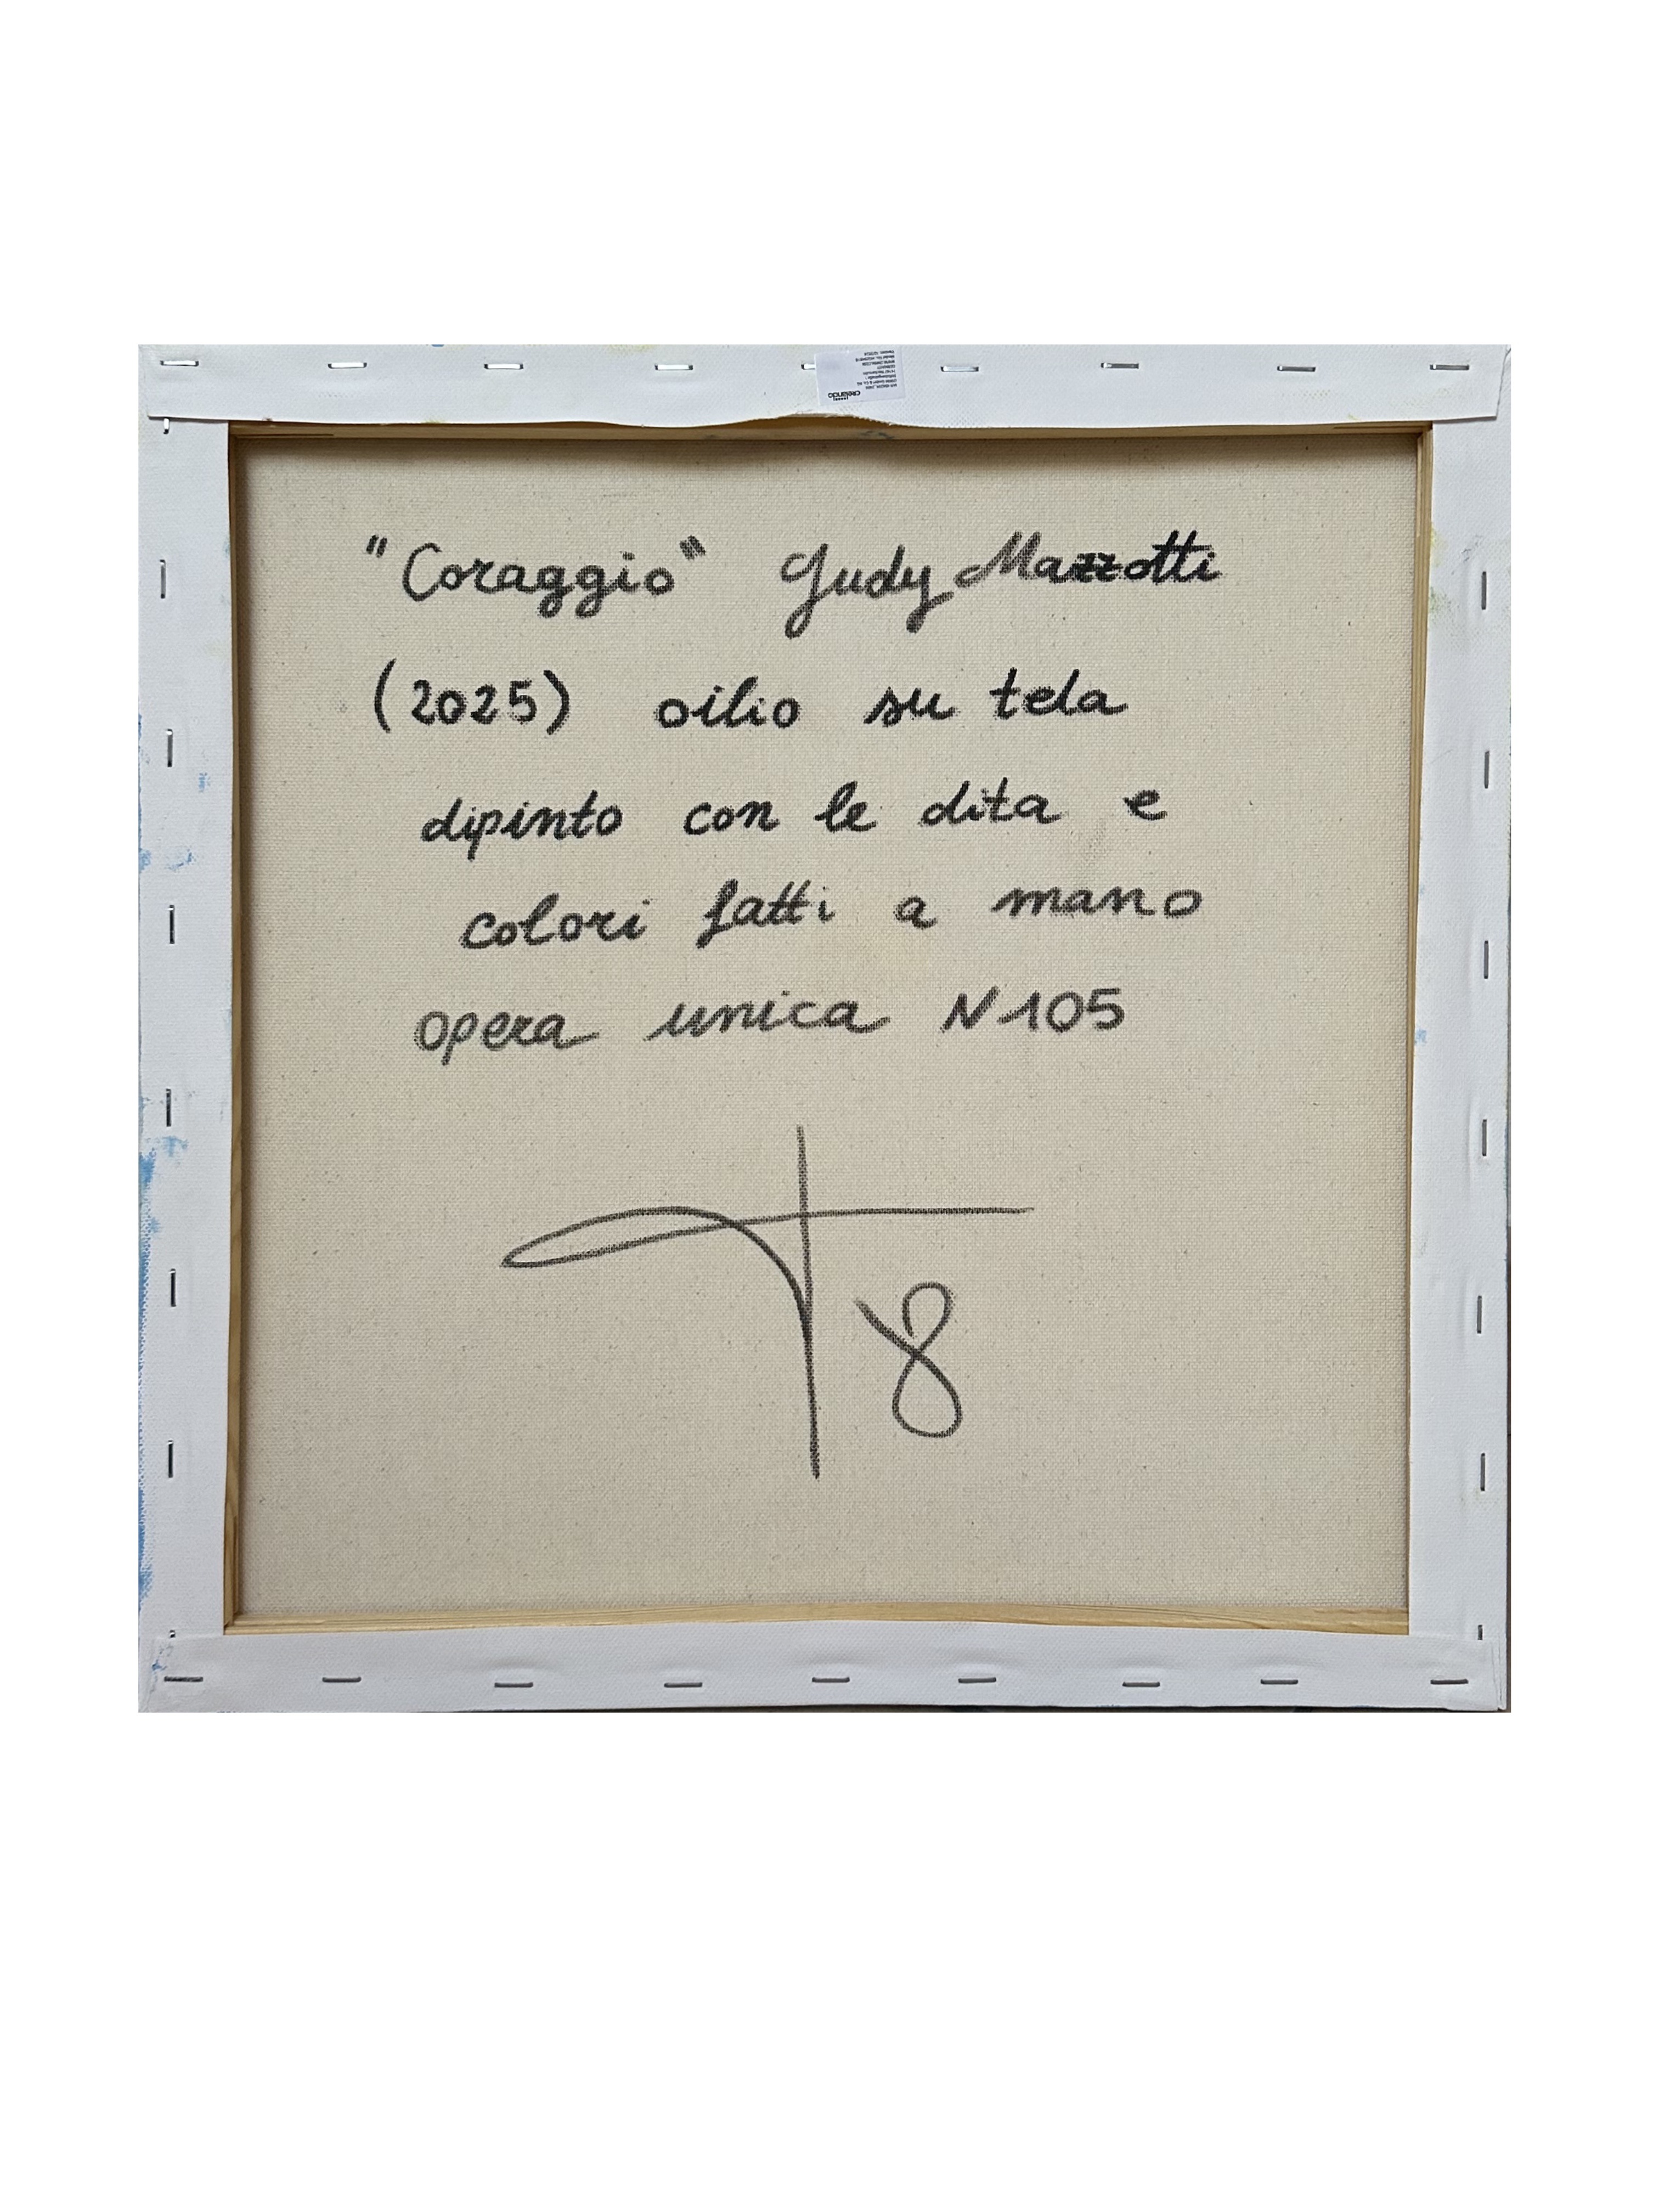 "Coraggio" Judy Mazzotti
(2025) oilio su tela
dipinto con le dita e
colori fatti a mano
opera unica N 105